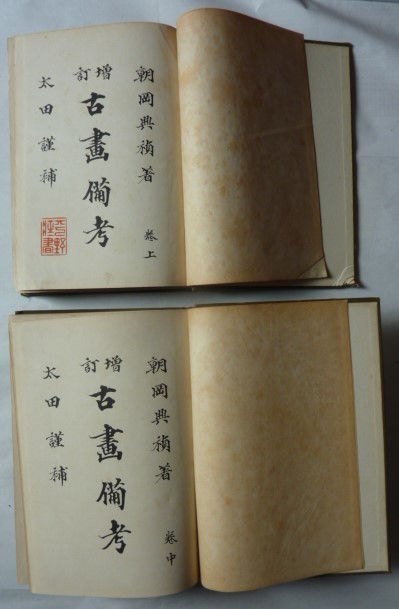 朝岡興禎著
卷上
增訂
古畫備考
太田謹補
朝岡興禎著
卷中
增訂
古畫備考
太田謹補